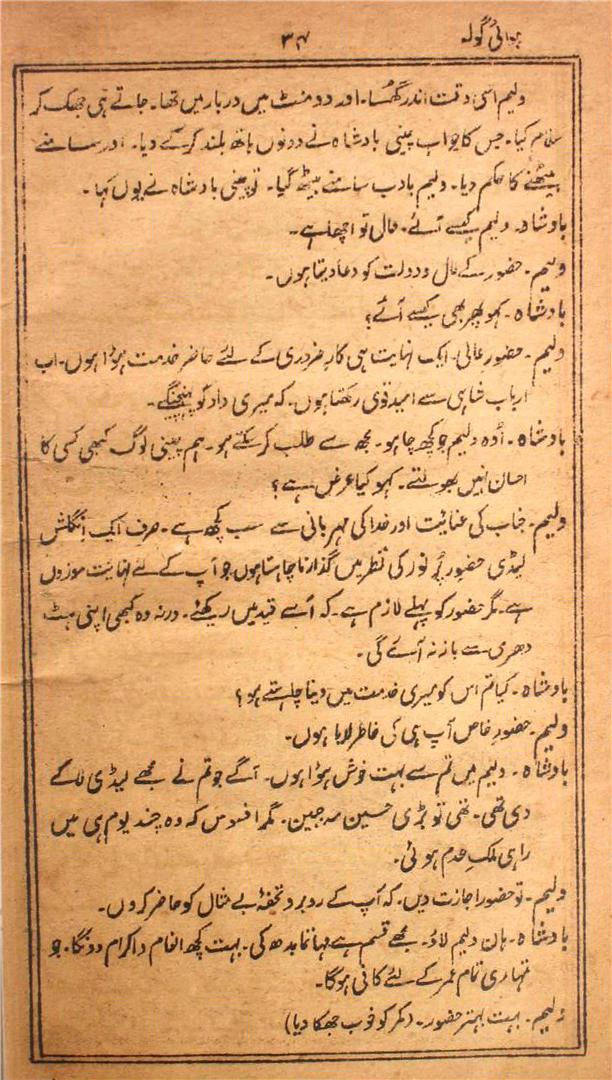 ہوائی گولہ
۳۴
ولیم اسی وقت اندر گھسا۔ اور دو منٹ میں دربار میں تھا۔ جاتے ہی جھک کر
سلام کیا۔ جس کا جواب چینی بادشاہ نے دونوں ہاتھ بلند کر کے دیا۔ اور سامنے
بیٹھنے کا حکم دیا۔ ولیم بادب سامنے بیٹھ گیا۔ تو چینی بادشاہ نے یوں کہا۔
بادشاہ۔ ولیم کیسے آئے۔ حال تو اچھا ہے۔
ولیم۔ حضور کے مال و دولت کو دعا دیتا ہوں۔
بادشاہ۔ کہو پھر بھی کیسے آئے؟
ولیم۔ حضور عالی۔ ایک نہایت ہی کارِ ضروری کے لئے حاضر خدمت ہوا ہوں۔ اب
ارباب شاہی سے امید قوی رکھتا ہوں۔ کہ میری داد کو پہنچینگے۔
بادشاہ۔ اوہ ولیم جو کچھ چاہو۔ مجھ سے طلب کر سکتے ہو۔ ہم چینی لوگ کبھی کسی کا
احسان نہیں بھولتے۔ کہو کیا عرض ہے؟
ولیم۔ جناب کی عنایت اور خدا کی مہربانی سے سب کچھ ہے۔ صرف ایک انگلش
لیڈی حضور پُر نور کی نظر میں گذارنا چاہتا ہوں۔ جو آپ کے لئے نہایت موزوں
ہے۔ مگر حضور کو پہلے لازم ہے۔ کہ اُسے قید میں رکھئے۔ ورنہ وہ کبھی اپنی ہٹ
دھری سے باز نہ آئے گی۔
بادشاہ۔ کیا تم اس کو میری خدمت میں دینا چاہتے ہو؟
ولیم۔ حضورِ خاص آپ ہی کی خاطر لایا ہوں۔
بادشاہ۔ ولیم میں تم سے بہت خوش ہوا ہوں۔ آگے جو تم نے مجھے لیڈی لا کے
دی تھی۔ تھی تو بڑی حسین مہ جبین۔ مگر افسوس کہ وہ چند یوم ہی میں
راہی ملکِ عدم ہوئی۔
ولیم۔ تو حضور اجازت دیں۔ کہ آپ کے روبرو تحفۂ بے مثال کو حاضر کروں۔
بادشاہ۔ ہاں ولیم لاؤ۔ مجھے قسم ہے مہاتما بدھ کی۔ بہت کچھ انعام و اکرام دونگا۔ جو
تمہاری تمام عمر کے لئے کافی ہوگا۔
ولیم۔ بہت بہتر حضور۔ (کمر کو خوب جھکا دیا)